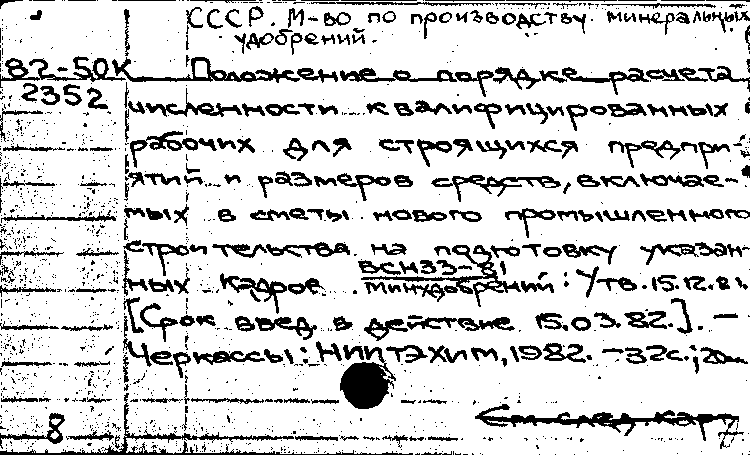 СССР. М-во по производству минеральных
удобрений.
82-50К Положение о порядке расчета
2352 численности квалифицированных
рабочих для строящихся предпри-
ятий и размеров средств, включае-
мых в сметы нового промышленного
строительства на подготовку указан-
ВСН33-81
ных кадров. Минудобрений: Утв. 15.12.81.
[Срок введ. в действие 15.03.82.]. —
Черкассы: НИИТЭХИМ, 1982. - 32с.; 20см
См след. карт
8